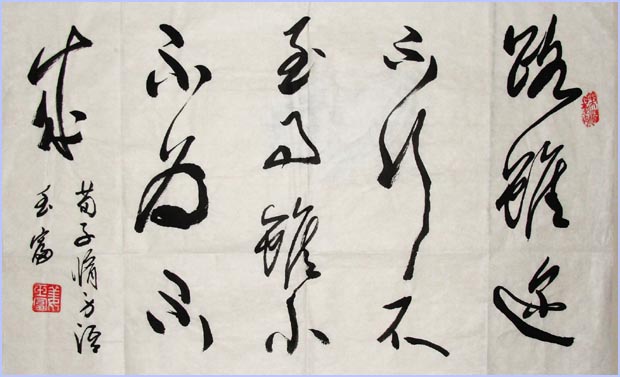 路雖迩
不行不
至事雖小
不为不
成
荀子脩身语
玉富